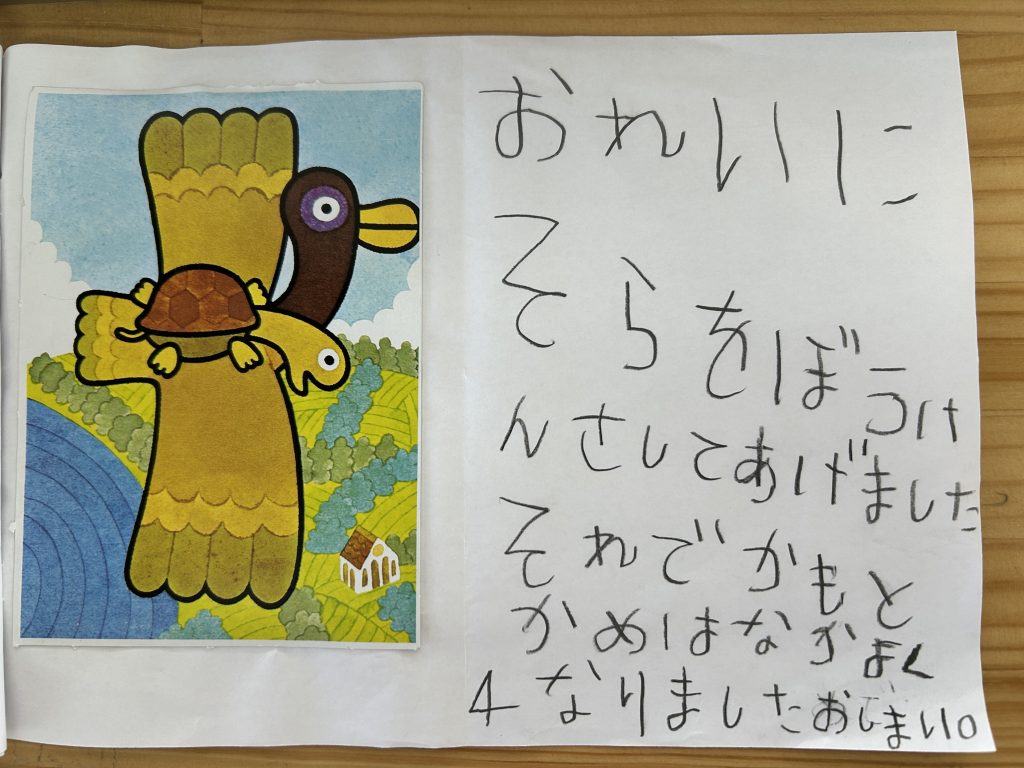 おれいに
そらをぼうけ
んさしてあげました
それでかもと
かめはなかよく
なりましたおしまい。
4